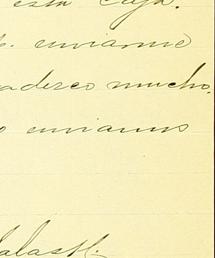 esta caja.
enviarme
adezco mucho,
enviamos